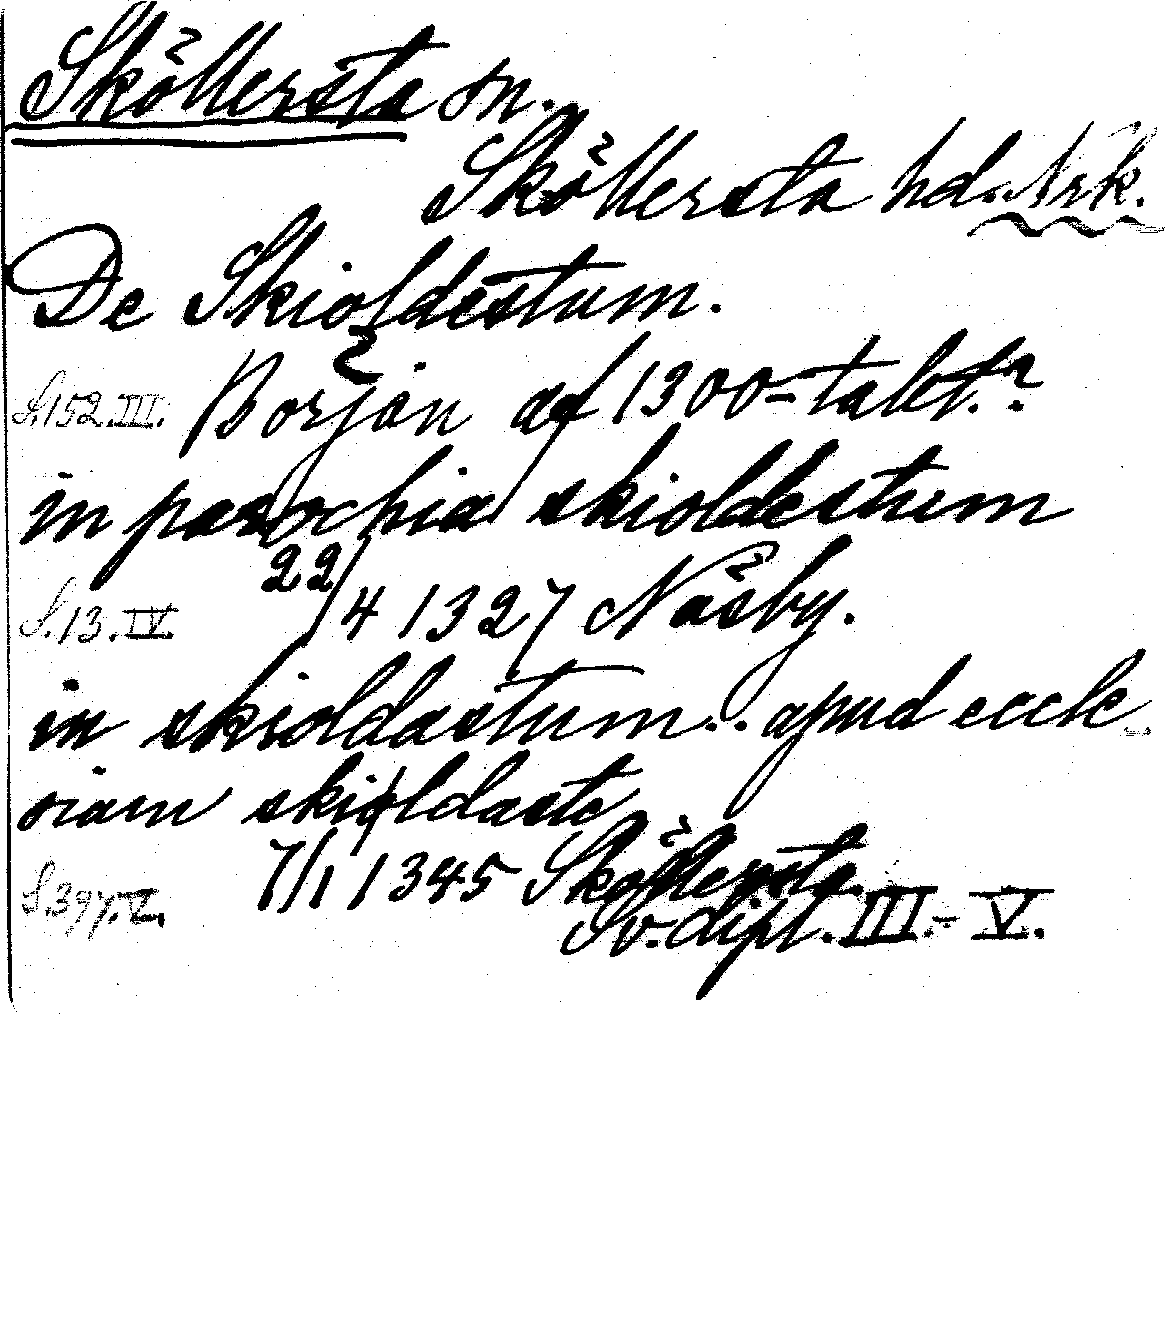 Sköllersta sn.
Sköllersta hd. Nrk.
De Skioldestum.
S. 152. III. Början af 1300-talet.?
in parochia skioldestum
S. 13. IV. 22/4 1327 Näsby.
in skioldastum.. apud eccle
siam skioldaste
S. 397. V. 7/1 1345 Sköllersta.
Sv. dipl. III.- V.